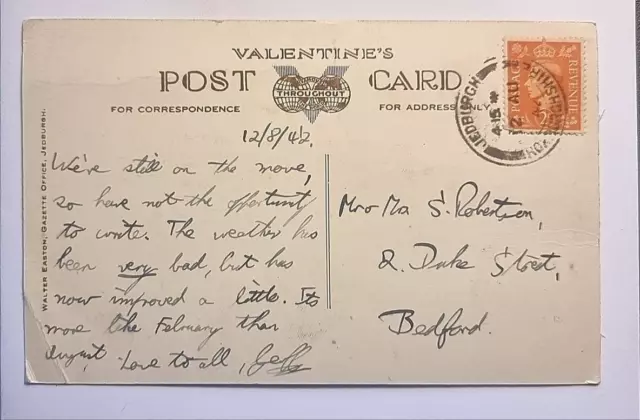 VALENTINE'S
POST CARD
THROUGHOUT
FOR CORRESPONDENCE
FOR ADDRESS ONLY
JEDBURGH
4-15 PM
12 AU
ROXBURGHSHIRE
POSTAGE REVENUE
2D
WALTER EASTON, GAZETTE OFFICE, JEDBURGH.
12/8/42.
We're still on the move,
so have not the opportunity
to write. The weather has
been very bad, but has
now improved a little. Its
more like February than
August. Love to all, Jeff
S. Robertson,
2. Duke Street,
Bedford.